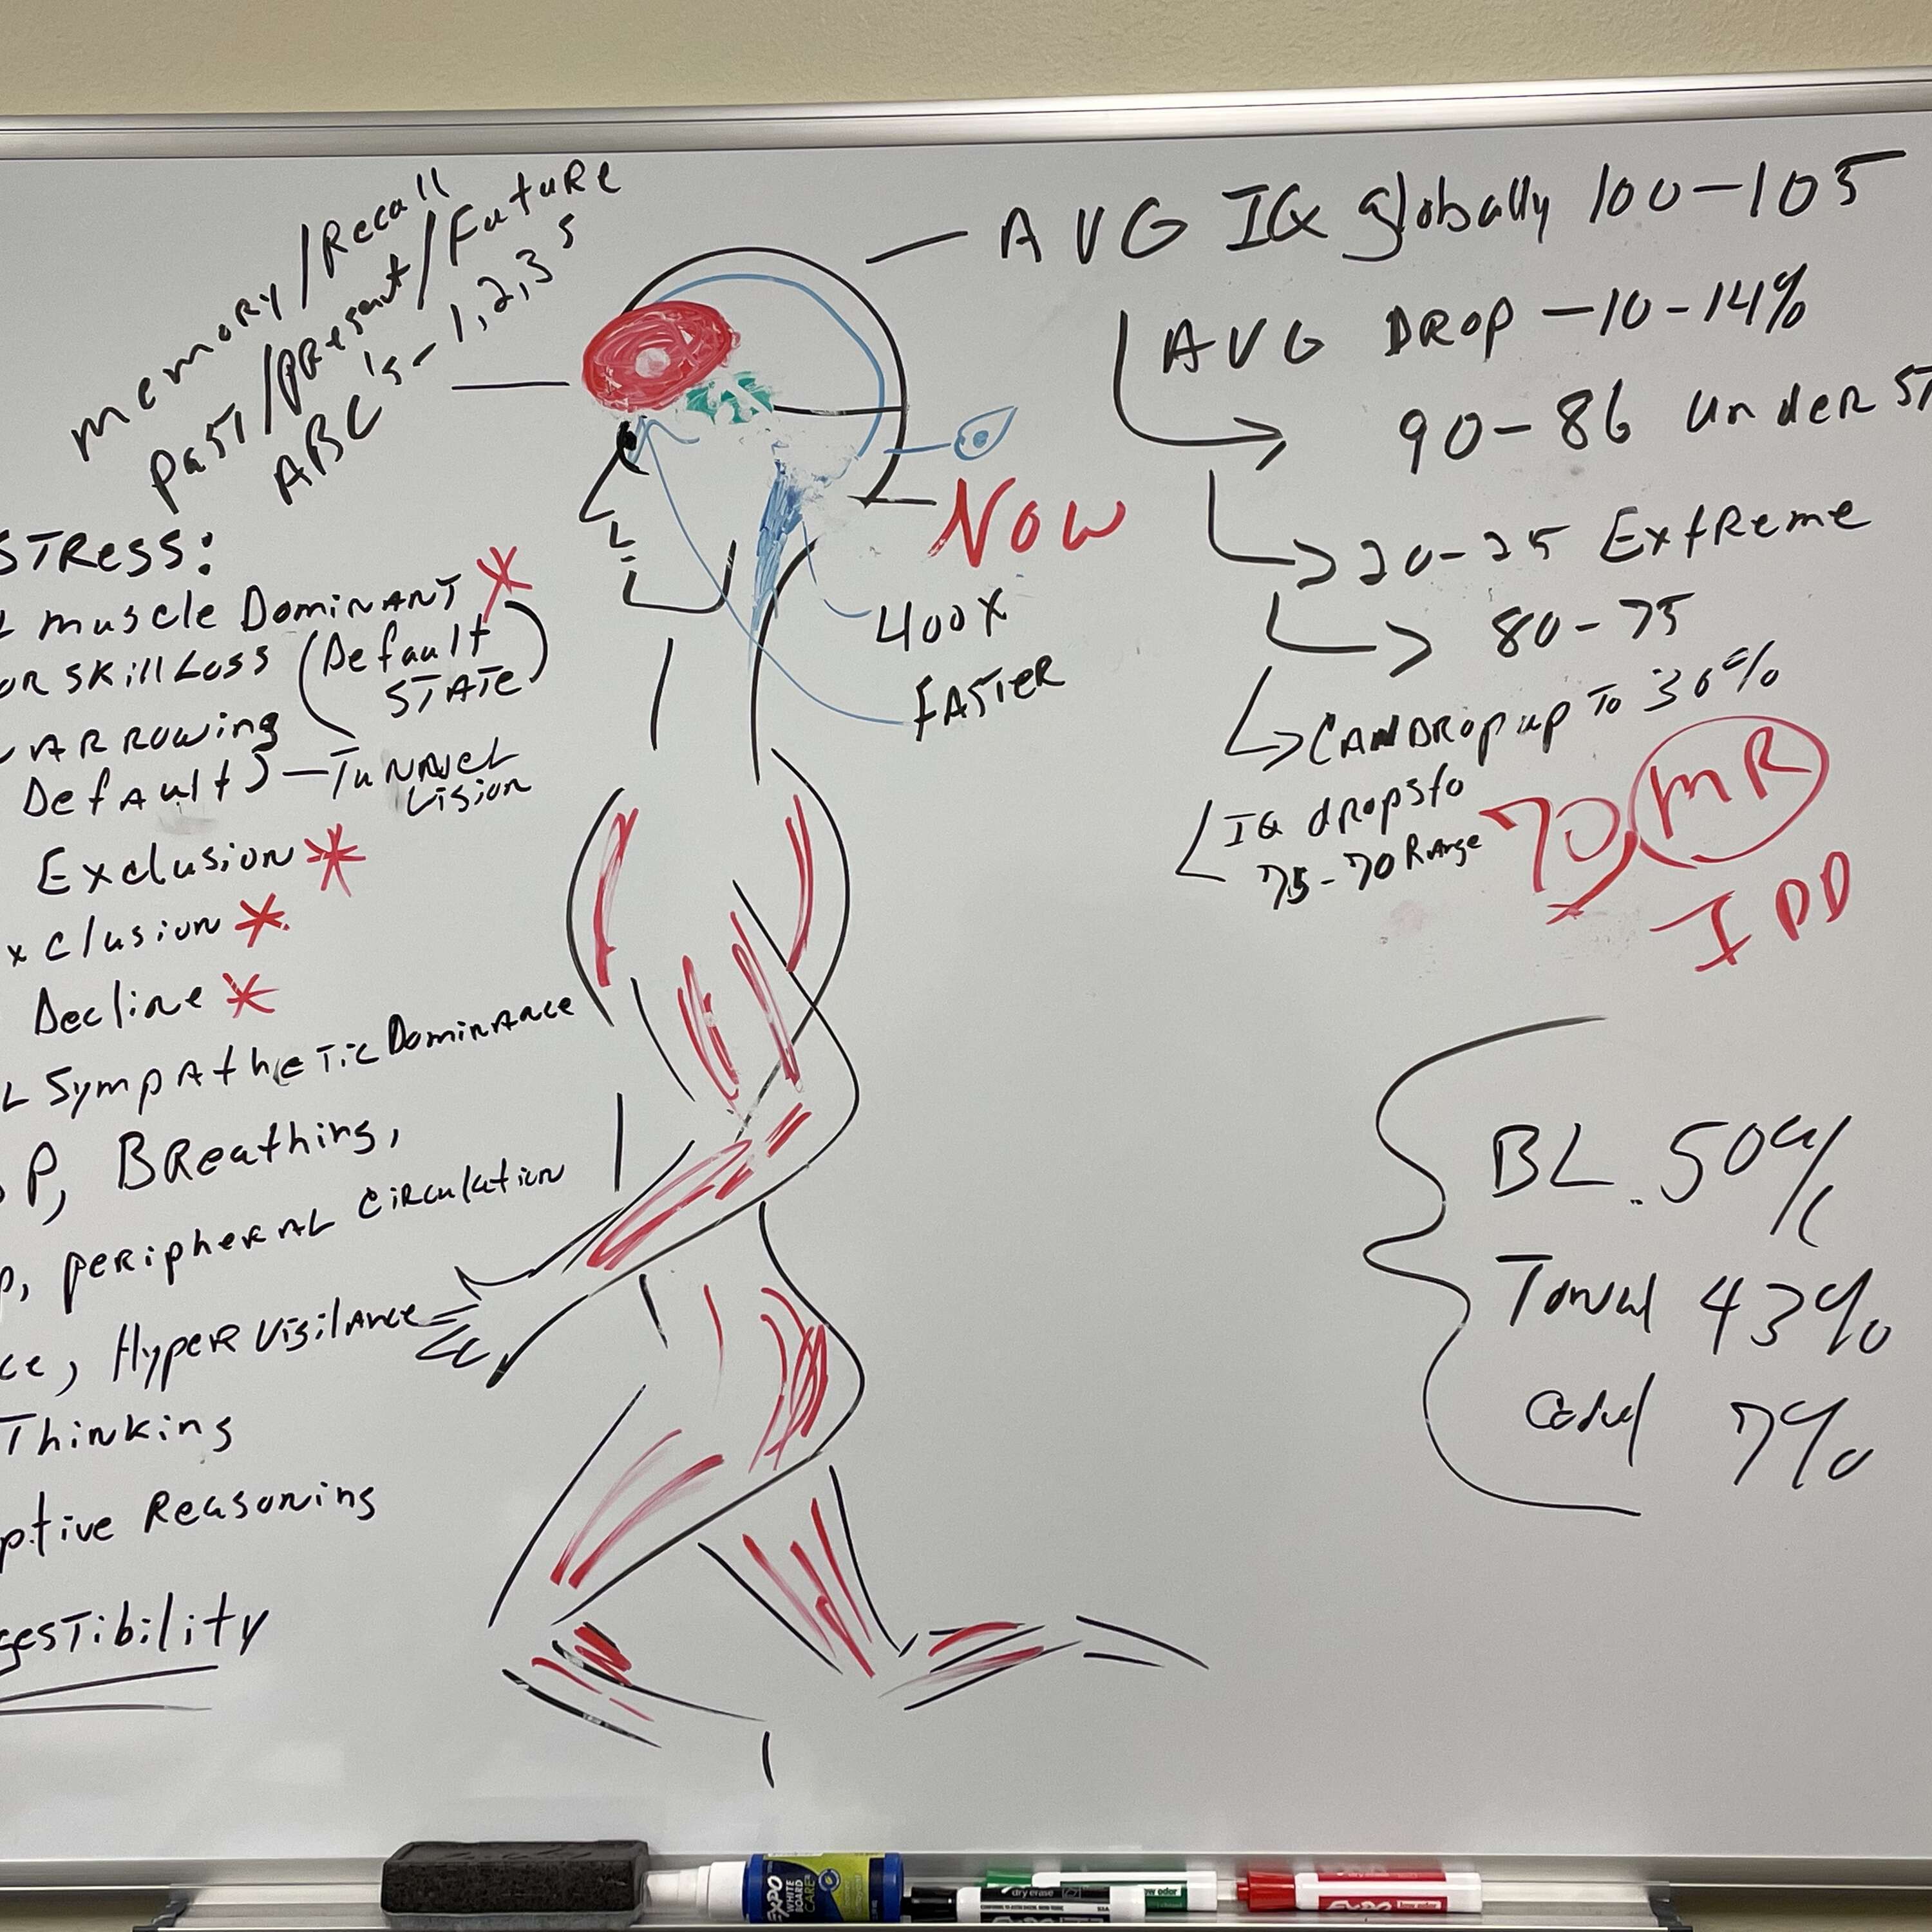 memory/Recall
past/present/Future
ABC's - 1,2,3s
STRess:
muscle Dominant
OR skill Loss (Default STATE)
ARROWing
Default) — Tunnel Vision
Exclusion
xclusion
Decline
L Sympathetic Dominance
P, BReathing,
peripheral Circulation
ce, Hyper Vigilance
Thinking
ptive Reasoning
gesTibility
AVG IQ globally 100-105
AVG DROP -10-14%
90-86 Under ST
20-25 Extreme
80-75
CAN DROP up To 30%
IQ drops to
75-70 Range
70 MR
IDD
NOW
400X
FASTER
BL. 50%
Tonal 43%
7%
EXPO
WHITE
BOARD
CARE
dry erase
low odor
EXPO
low odor